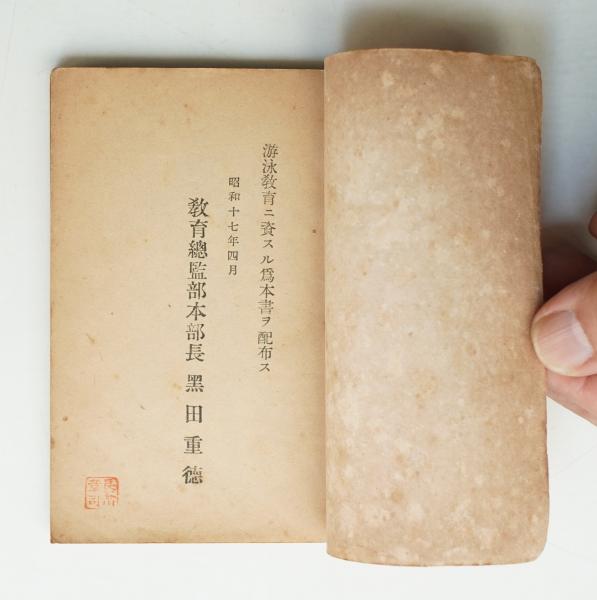 游泳敎育ニ資スル爲本書ヲ配布ス
昭和十七年四月
敎育總監部本部長 黑田重德